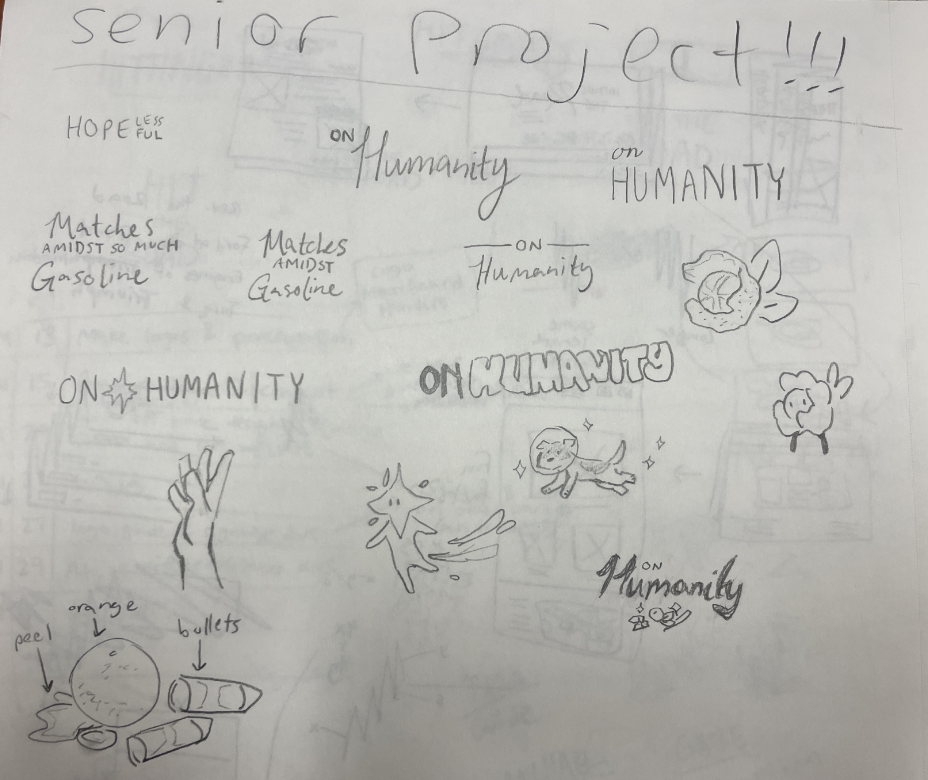 senior Project!!!
HOPE LESS
FUL
ON Humanity
on
HUMANITY
Matches
AMIDST SO MUCH
Gasoline
Matches
AMIDST
Gasoline
ON
Humanity
ON HUMANITY
ON HUMANITY
ON
Humanity
orange
peel
bullets